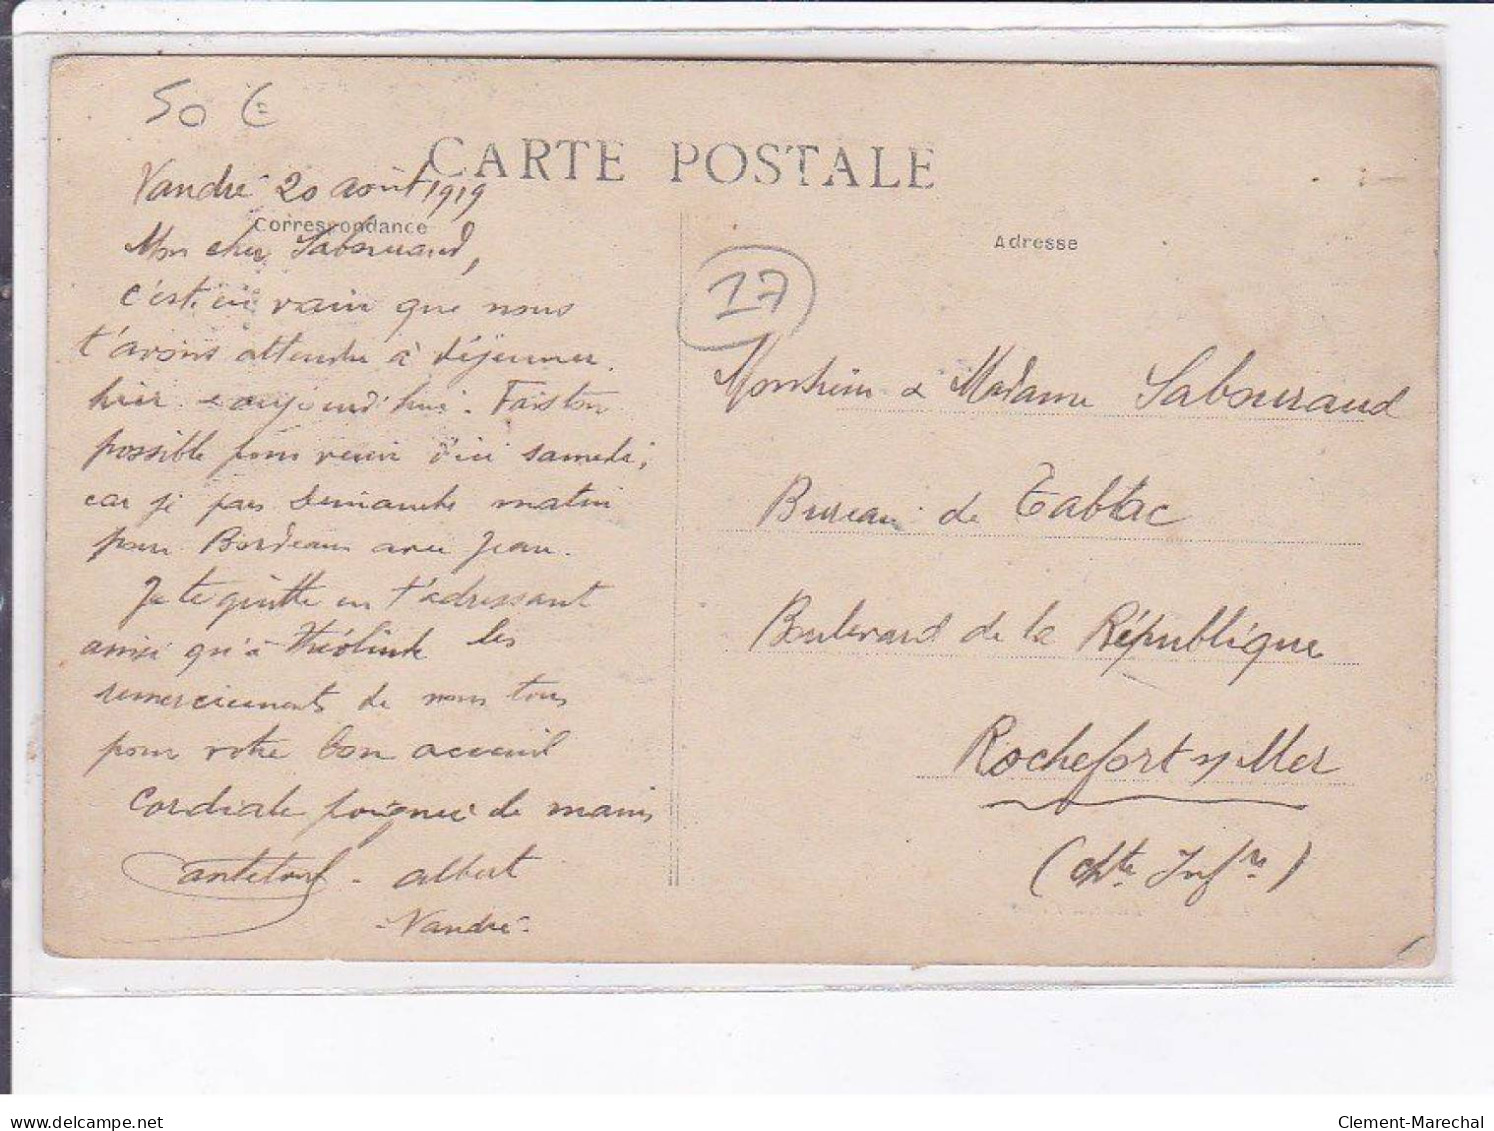 50 €
CARTE POSTALE
Vandré 20 août 1919
Correspondance
Mon cher Sabouraud,
c'est en vain que nous
t'avons attendre à déjeuner
hier aujourd'hui. Fais ton
possible pour venir d'ici samedi,
car je pars demanche matin
pour Bordeaux avec Jean.
Je te quitte en t'adressant
ainsi qu'à Théolinde les
remerciements de nous tous
pour votre bon acceuil
Cordiale poignée de mains
albert
Vandré
Adresse
17
Monsieur & Madame Sabouraud
Bureau de Tabac
Boulevard de la République
Rochefort s/ Mer
(Chte Infre)
delcampe.net
Clement-Marechal